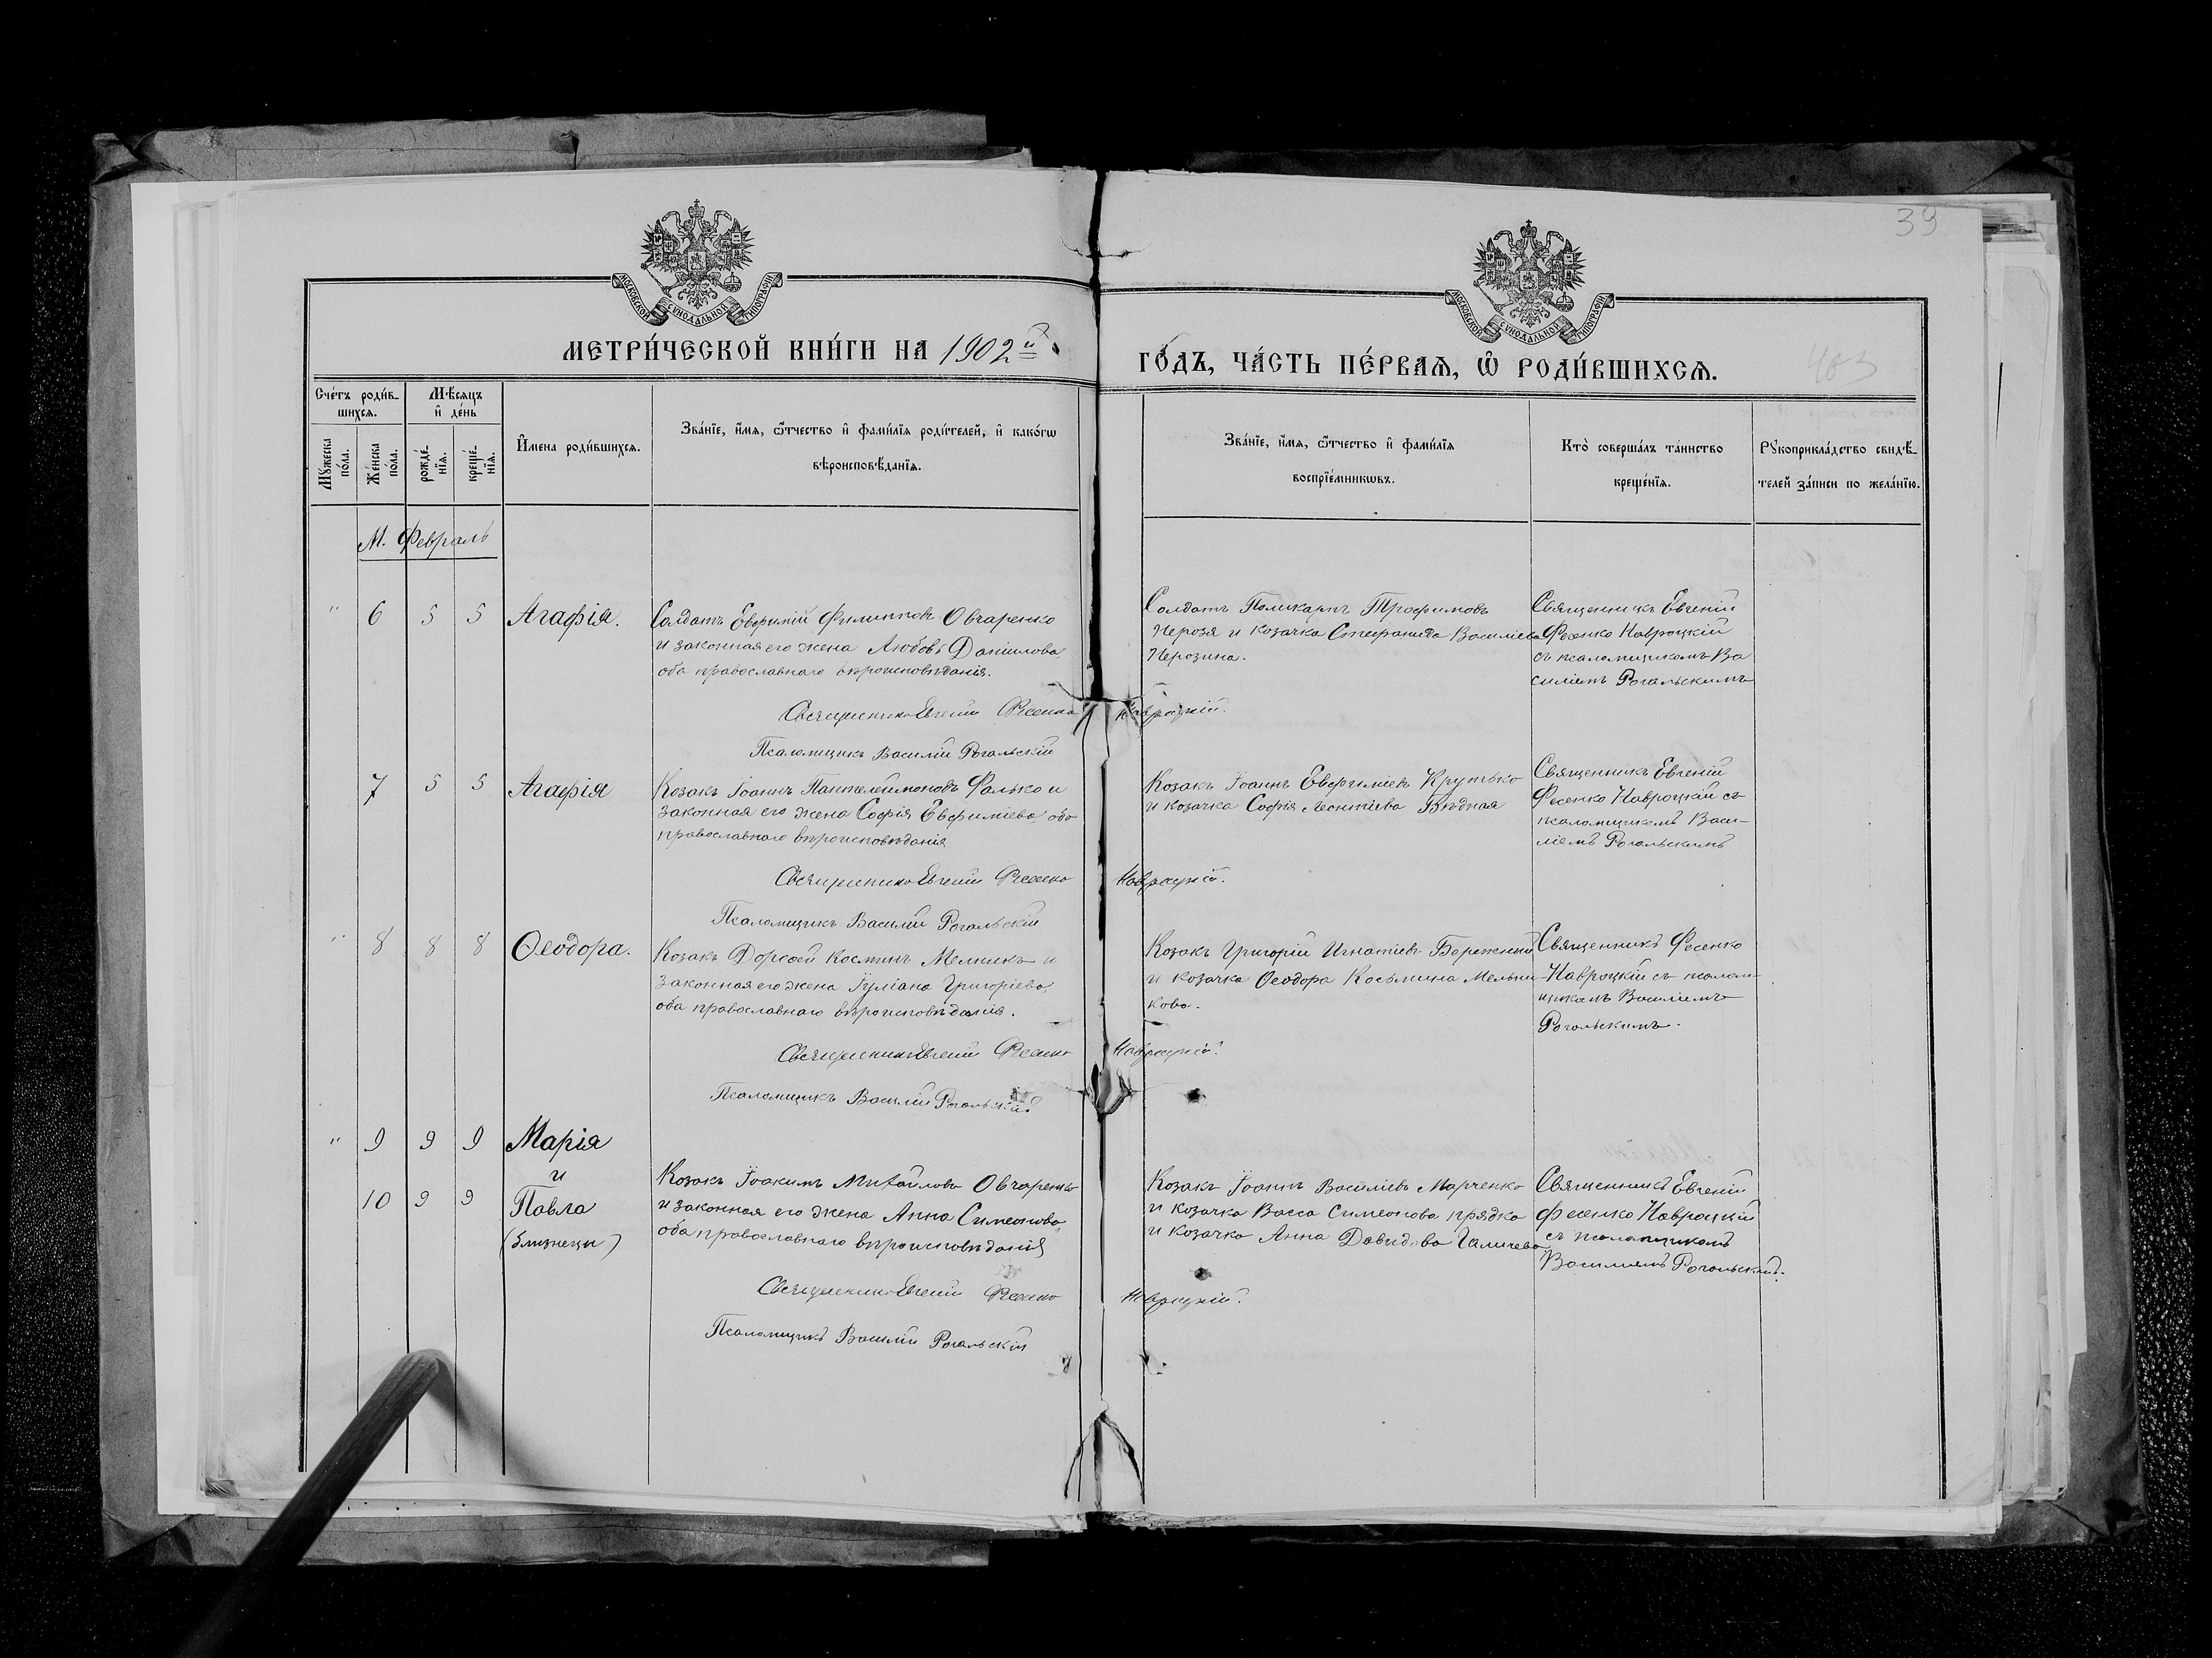 39
МОСКОВСКОЙ СѴНОДАЛЬНОЙ ТИПОГРАФІИ
МОСКОВСКОЙ СѴНОДАЛЬНОЙ ТИПОГРАФІИ
МЕТРИ́ЧЕСКОЙ КНИ́ГИ НА 1902й
ГО́ДЪ, ЧА́СТЬ ПЕ́РВАѦ, Ѽ РОДИ́ВШИХСѦ.
463
Сче́тъ роди́в-
шихсѧ.
Мѣ́сяцъ
и҆ де́нь
Мꙋ́жеска
по́ла.
Же́нска
по́ла.
рожде́-
нїѧ.
креще́-
нїѧ.
И҆мена роди́вшихсѧ.
Зва́нїе, и҆́мѧ, ѻ҆́тчество и҆ фами́лїѧ роди́телей, и҆ како́гѡ
вѣроисповѣ́данїѧ.
Зва́нїе, и҆́мѧ, ѻ҆́тчество и҆ фами́лїѧ
воспрїе́мникѡвъ.
Кто̀ соверша́лъ та́инство
креще́нїѧ.
Рꙋкоприкла́дство свидѣ́-
телей за́писи по жела́нїю.
М. Февраль
" 6 5 5 Агафія.
Солдатъ Евфимій Филипповъ Овчаренко
и законная его жена Любовь Даніилова,
оба православнаго вѣроисповѣданія.
Солдатъ Поликарпъ Трофимовъ
Нерозя и козачка Стефанида Василіева
Нерозина.
Священникъ Евгеній
Фесенко Навроцкій
съ псаломщикомъ Ва
силіемъ Рогальскимъ
Священникъ Евгеній Фесенко Навроцкій.
Псаломщикъ Василій Рогальскій
7 5 5 Агафія
Козакъ Іоаннъ Пантелеимоновъ Фалько и
законная его жена Софія Евфиміева, оба
православнаго вѣроисповѣданія
Козакъ Іоаннъ Евфиміевъ Крутько
и козачка Софія Леонтіева Бѣдная
Священникъ Евгеній
Фесенко Навроцкій съ
псаломщикомъ Васи-
ліемъ Рогальскимъ
Священникъ Евгеній Фесенко Навроцкій.
Псаломщикъ Василій Рогальскій
" 8 8 8 Ѳеодора.
Козакъ Дорофей Косминъ Мельникъ и
законная его жена Іуліана Григоріева,
оба православнаго вѣроисповѣданія.
Козакъ Григорій Игнатіевъ Бережный
и козачка Ѳеодора Косьмина Мельни-
кова.
Священникъ Фесенко
Навроцкій съ псалом-
щикомъ Василіемъ
Рогальскимъ.
Священникъ Евгеній Фесенко Навроцкій.
Псаломщикъ Василій Рогальскій
" 9 9 9 Марія
и
10 9 9 Павла
(близнецы)
Козакъ Іоакимъ Михайловъ Овчаренко
и законная его жена Анна Симеонова,
оба православнаго вѣроисповѣданія
Козакъ Іоаннъ Василіевъ Марченко
и козачка Васса Симеонова Прядко
и козачка Анна Давидова Галичева
Священникъ Евгеній
Фесенко Навроцкій
съ псаломщикомъ
Василіемъ Рогальскимъ.
Священникъ Евгеній Фесенко Навроцкій.
Псаломщикъ Василій Рогальскій